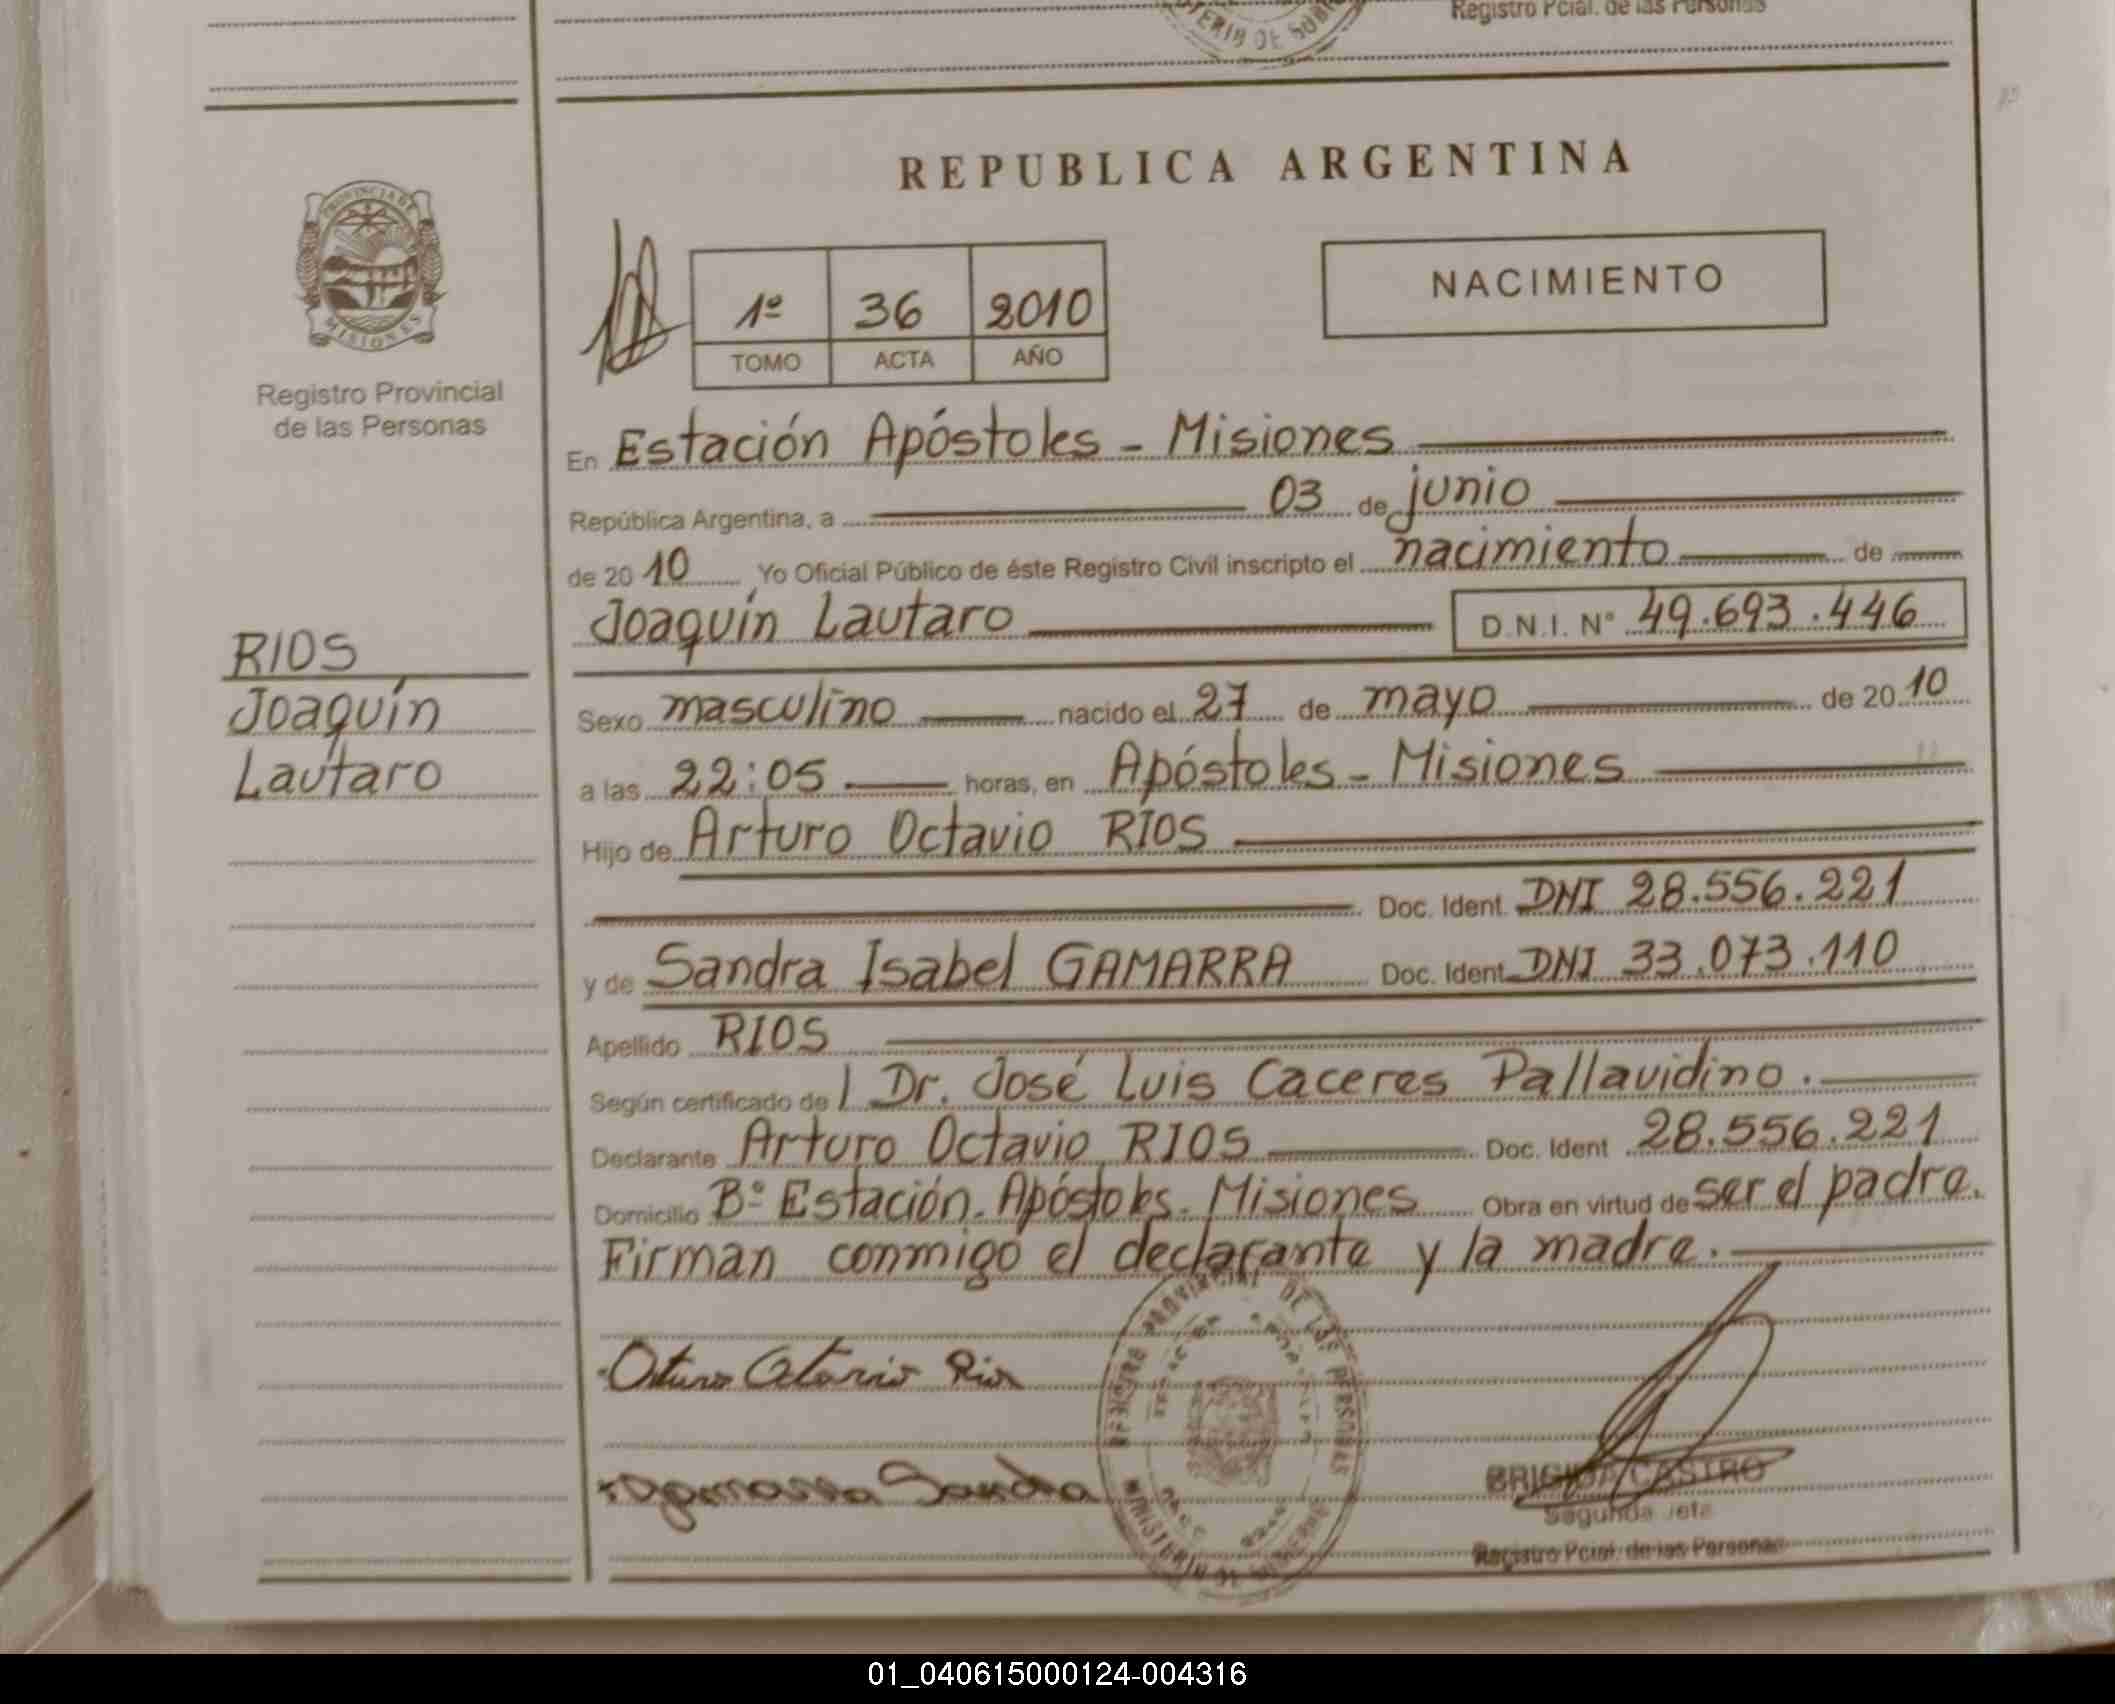 Registro Pcial. de las Personas
REPUBLICA ARGENTINA
PROVINCIA DE
MISIONES
Registro Provincial
de las Personas
1º 36 2010
TOMO ACTA AÑO
NACIMIENTO
En Estación Apóstoles - Misiones
República Argentina, a 03 de junio
de 20 10 Yo Oficial Público de éste Registro Civil inscripto el nacimiento de
Joaquín Lautaro D.N.I. Nº 49.693.446
RIOS
Joaquín
Lautaro
Sexo masculino nacido el 27 de mayo de 20 10
a las 22:05 horas, en Apóstoles - Misiones
Hijo de Arturo Octavio RIOS
Doc. Ident. DNI 28.556.221
y de Sandra Isabel GAMARRA Doc. Ident. DNI 33.073.110
Apellido RIOS
Según certificado de l Dr. José Luis Caceres Pallavidino.
Declarante Arturo Octavio RIOS Doc. Ident 28.556.221
Domicilio Bº Estación. Apóstoles. Misiones Obra en virtud de ser el padre.
Firman conmigo el declarante y la madre.
REGISTRO PROVINCIAL DE LAS PERSONAS
MINISTERIO DE GOBIERNO
Arturo Octavio Rios
Gamarra Sandra
BRIGIDA CASTRO
Segunda Jefe
Registro Pcial. de las Personas
01_040615000124-004316